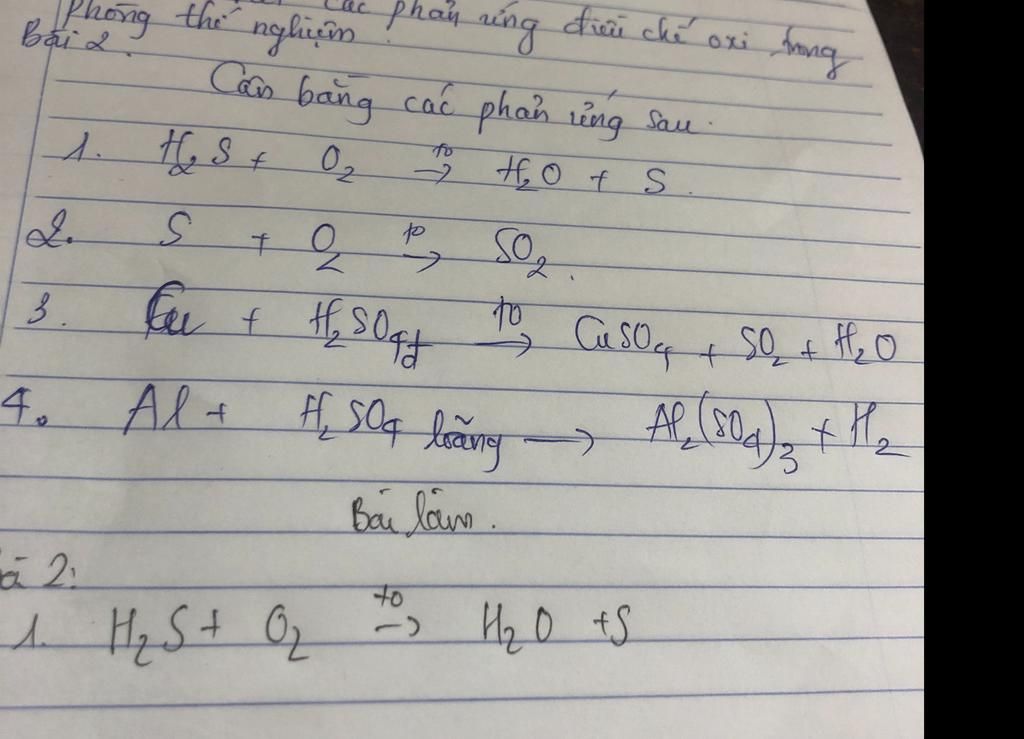 các phản ứng điều chế oxi trong
phòng thí nghiệm.
Bài 2.
Cân bằng các phản ứng sau.
1. H₂S + O₂ →^{t°} H₂O + S.
2. S + O₂ →^{t°} SO₂.
3. Cu + H₂SO₄đ →^{t°} CuSO₄ + SO₂ + H₂O
4. Al + H₂SO₄ loãng → Al₂(SO₄)₃ + H₂
Bài làm.
2:
1. H₂S + O₂ →^{t°} H₂O + S